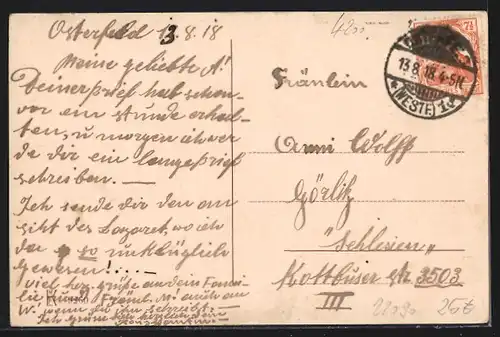 Osterfeld 13.8.18
Meine geliebte A!
Deiner brief hab schon
vor ein stunde erhal-
ten, u morgen ich wer
de dir ein langeßrief
schreiben. —
Ich sende dir den an
siht des Lazaret, wo ich
der so unklüglich
gewesen!....
Viel her. grüße an dein Fami-
lie
W. wenn du ihn schreibst.
4200
7½
13.8.18.4-5N.
(WESTF) 1d
Fräulein
Anni Wolff
Görlitz
"Schlesien"
Kottbuser str 3503
III